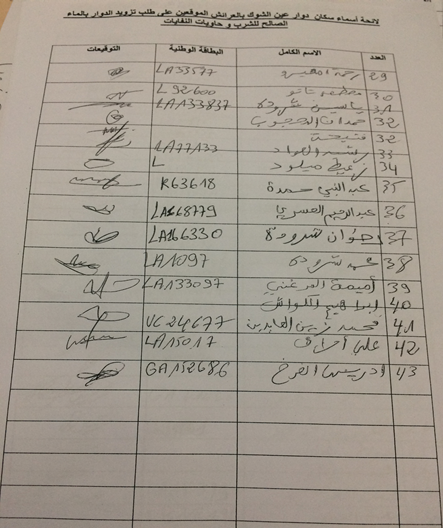 لائحة أسماء سكان دوار عين الشوك بالعرائش الموقعين على طلب تزويد الدوار بالماء
الصالح للشرب و حاويات النفايات
العدد الاسم الكامل البطاقة الوطنية التوقيعات
29 رحمة LA33577
30 L92600
31 ياسين شرودة LA133837
32
32 فتيحة
33 LA77133
34 ميلود L
35 عبد النبي حمدة K63618
36 عبد الرحيم العسري LA168779
37 رضوان شرودة LA166330
38 محمد شرودة LA1097
39 أميمة LA133097
40 ابراهيم اللواش
41 محمد زين العابدين VC24677
42 علي LA15017
43 ادريس الفرخ GA152686